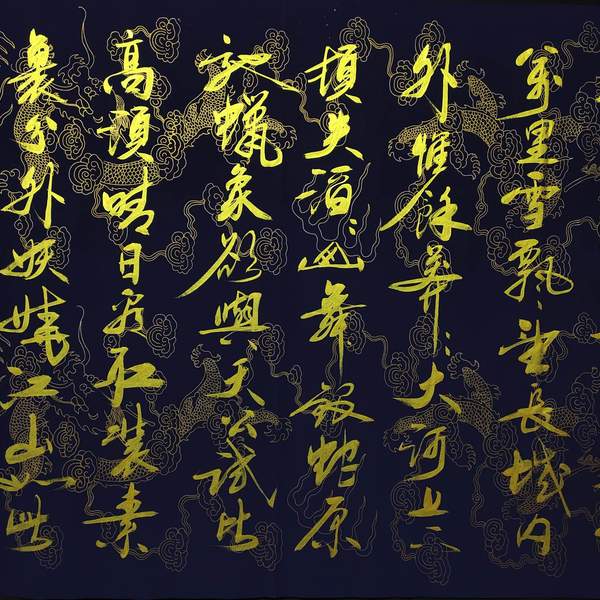 萬里雪飄望長城内
外惟餘莽〻大河上下
頓失滔〻山舞銀蛇原
馳蠟象欲與天公試比
高須晴日看红裝素
裹分外妖娆江山如此